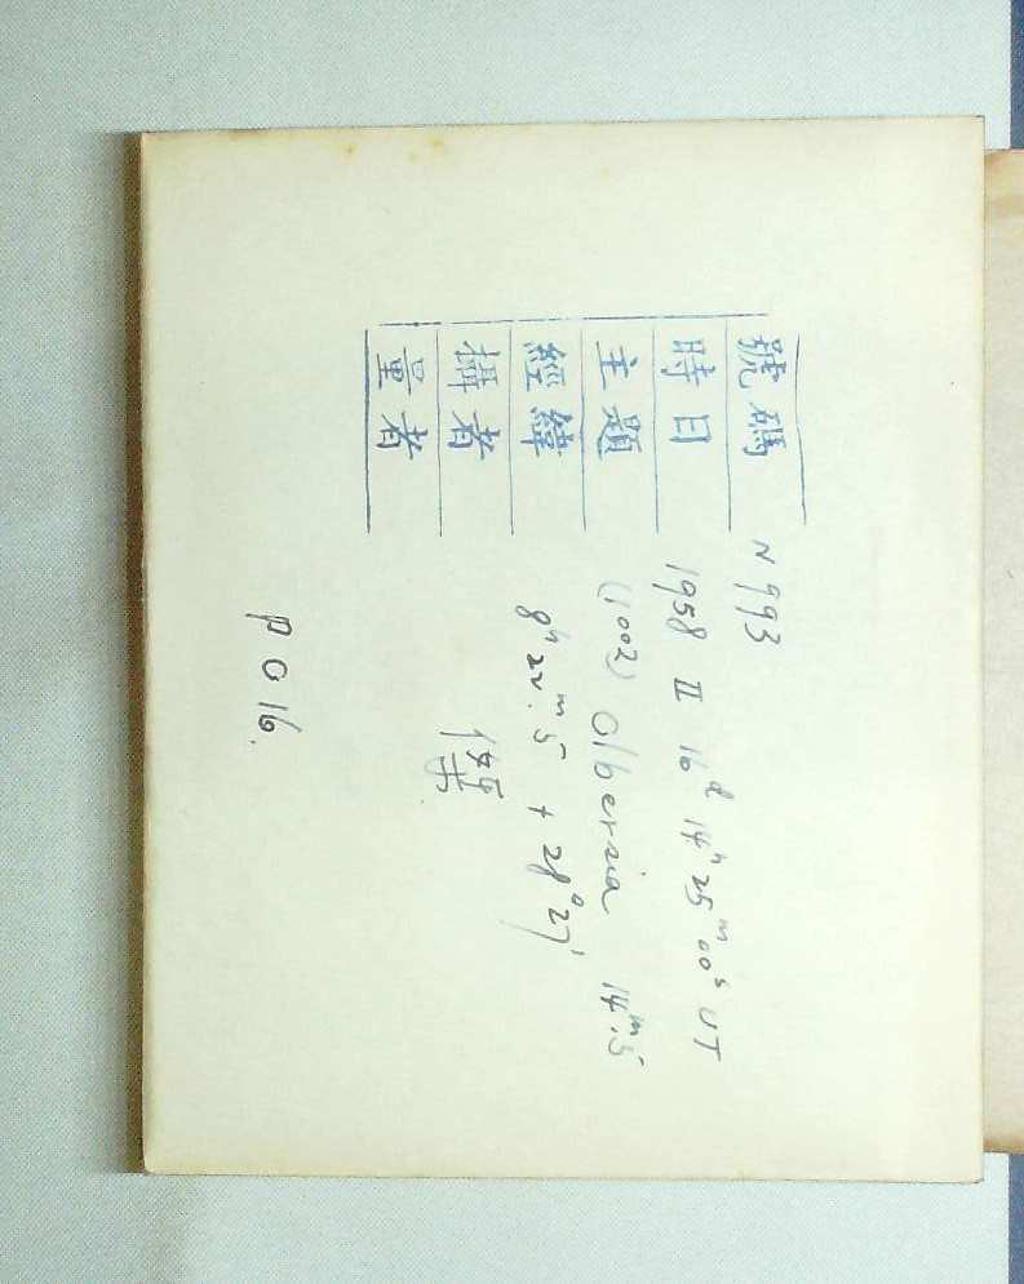 號碼 N993
時日 1958 II 16d 14h 25m 00s UT
主題 (1002) Olbersia 14m.5
經緯 8h 22m.5 + 28°27'
攝者
量者
P016.